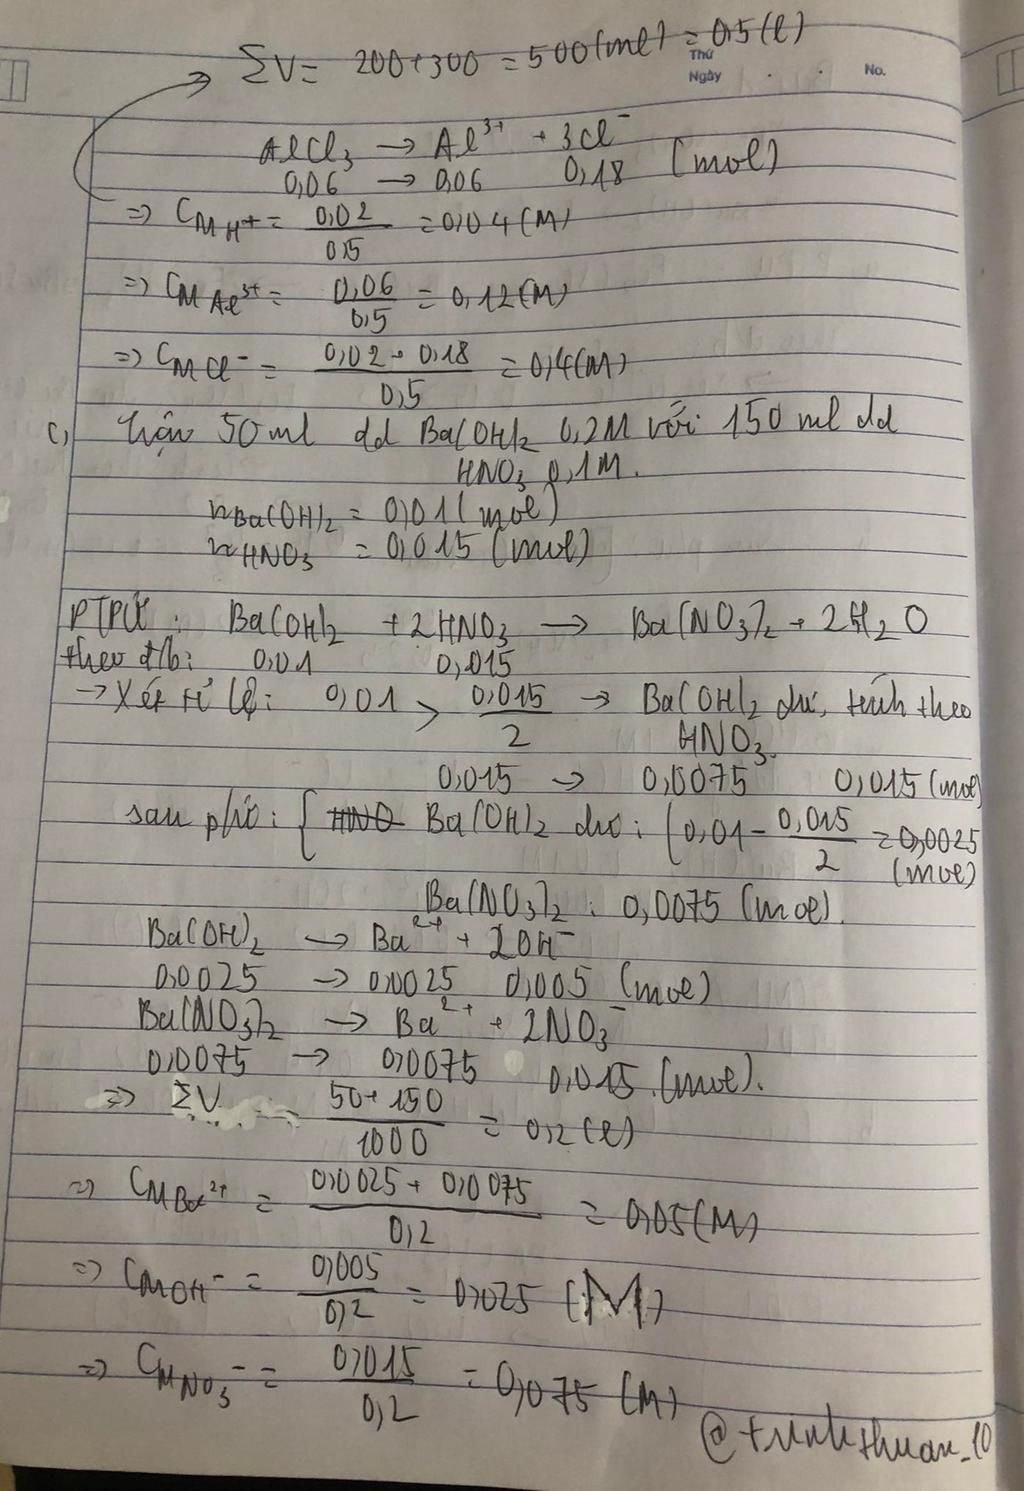 ΣV = 200+300 = 500(ml) = 0,5(l)
Thứ
Ngày . . No.
AlCl₃ → Al³⁺ + 3Cl⁻
0,06 → 0,06 0,18 (mol)
=> C_M H⁺ = 0,02/0,5 = 0,04(M)
=> C_M Al³⁺ = 0,06/0,5 = 0,12(M)
=> C_M Cl⁻ = (0,02+0,18)/0,5 = 0,4(M)
c, trộn 50ml dd Ba(OH)₂ 0,2M với 150ml dd
HNO₃ 0,1M.
n Ba(OH)₂ = 0,01(mol)
n HNO₃ = 0,015(mol)
PTPỨ: Ba(OH)₂ + 2HNO₃ → Ba(NO₃)₂ + 2H₂O
theo đb: 0,01 0,015
→ Xét tỉ lệ: 0,01 > 0,015/2 → Ba(OH)₂ dư, tính theo
HNO₃.
0,015 → 0,0075 0,015(mol)
sau pứ: { HNO Ba(OH)₂ dư: (0,01 - 0,015/2 = 0,0025
(mol)
Ba(NO₃)₂ : 0,0075 (mol).
Ba(OH)₂ → Ba²⁺ + 2OH⁻
0,0025 → 0,0025 0,005 (mol)
Ba(NO₃)₂ → Ba²⁺ + 2NO₃⁻
0,0075 → 0,0075 0,015.(mol).
=> ΣV = (50+150)/1000 = 0,2(l)
=> C_M Ba²⁺ = (0,0025+0,0075)/0,2 = 0,05(M)
=> C_M OH⁻ = 0,005/0,2 = 0,025 (M)
=> C_M NO₃⁻ = 0,015/0,2 = 0,075 (M)
@trinhthuan_10